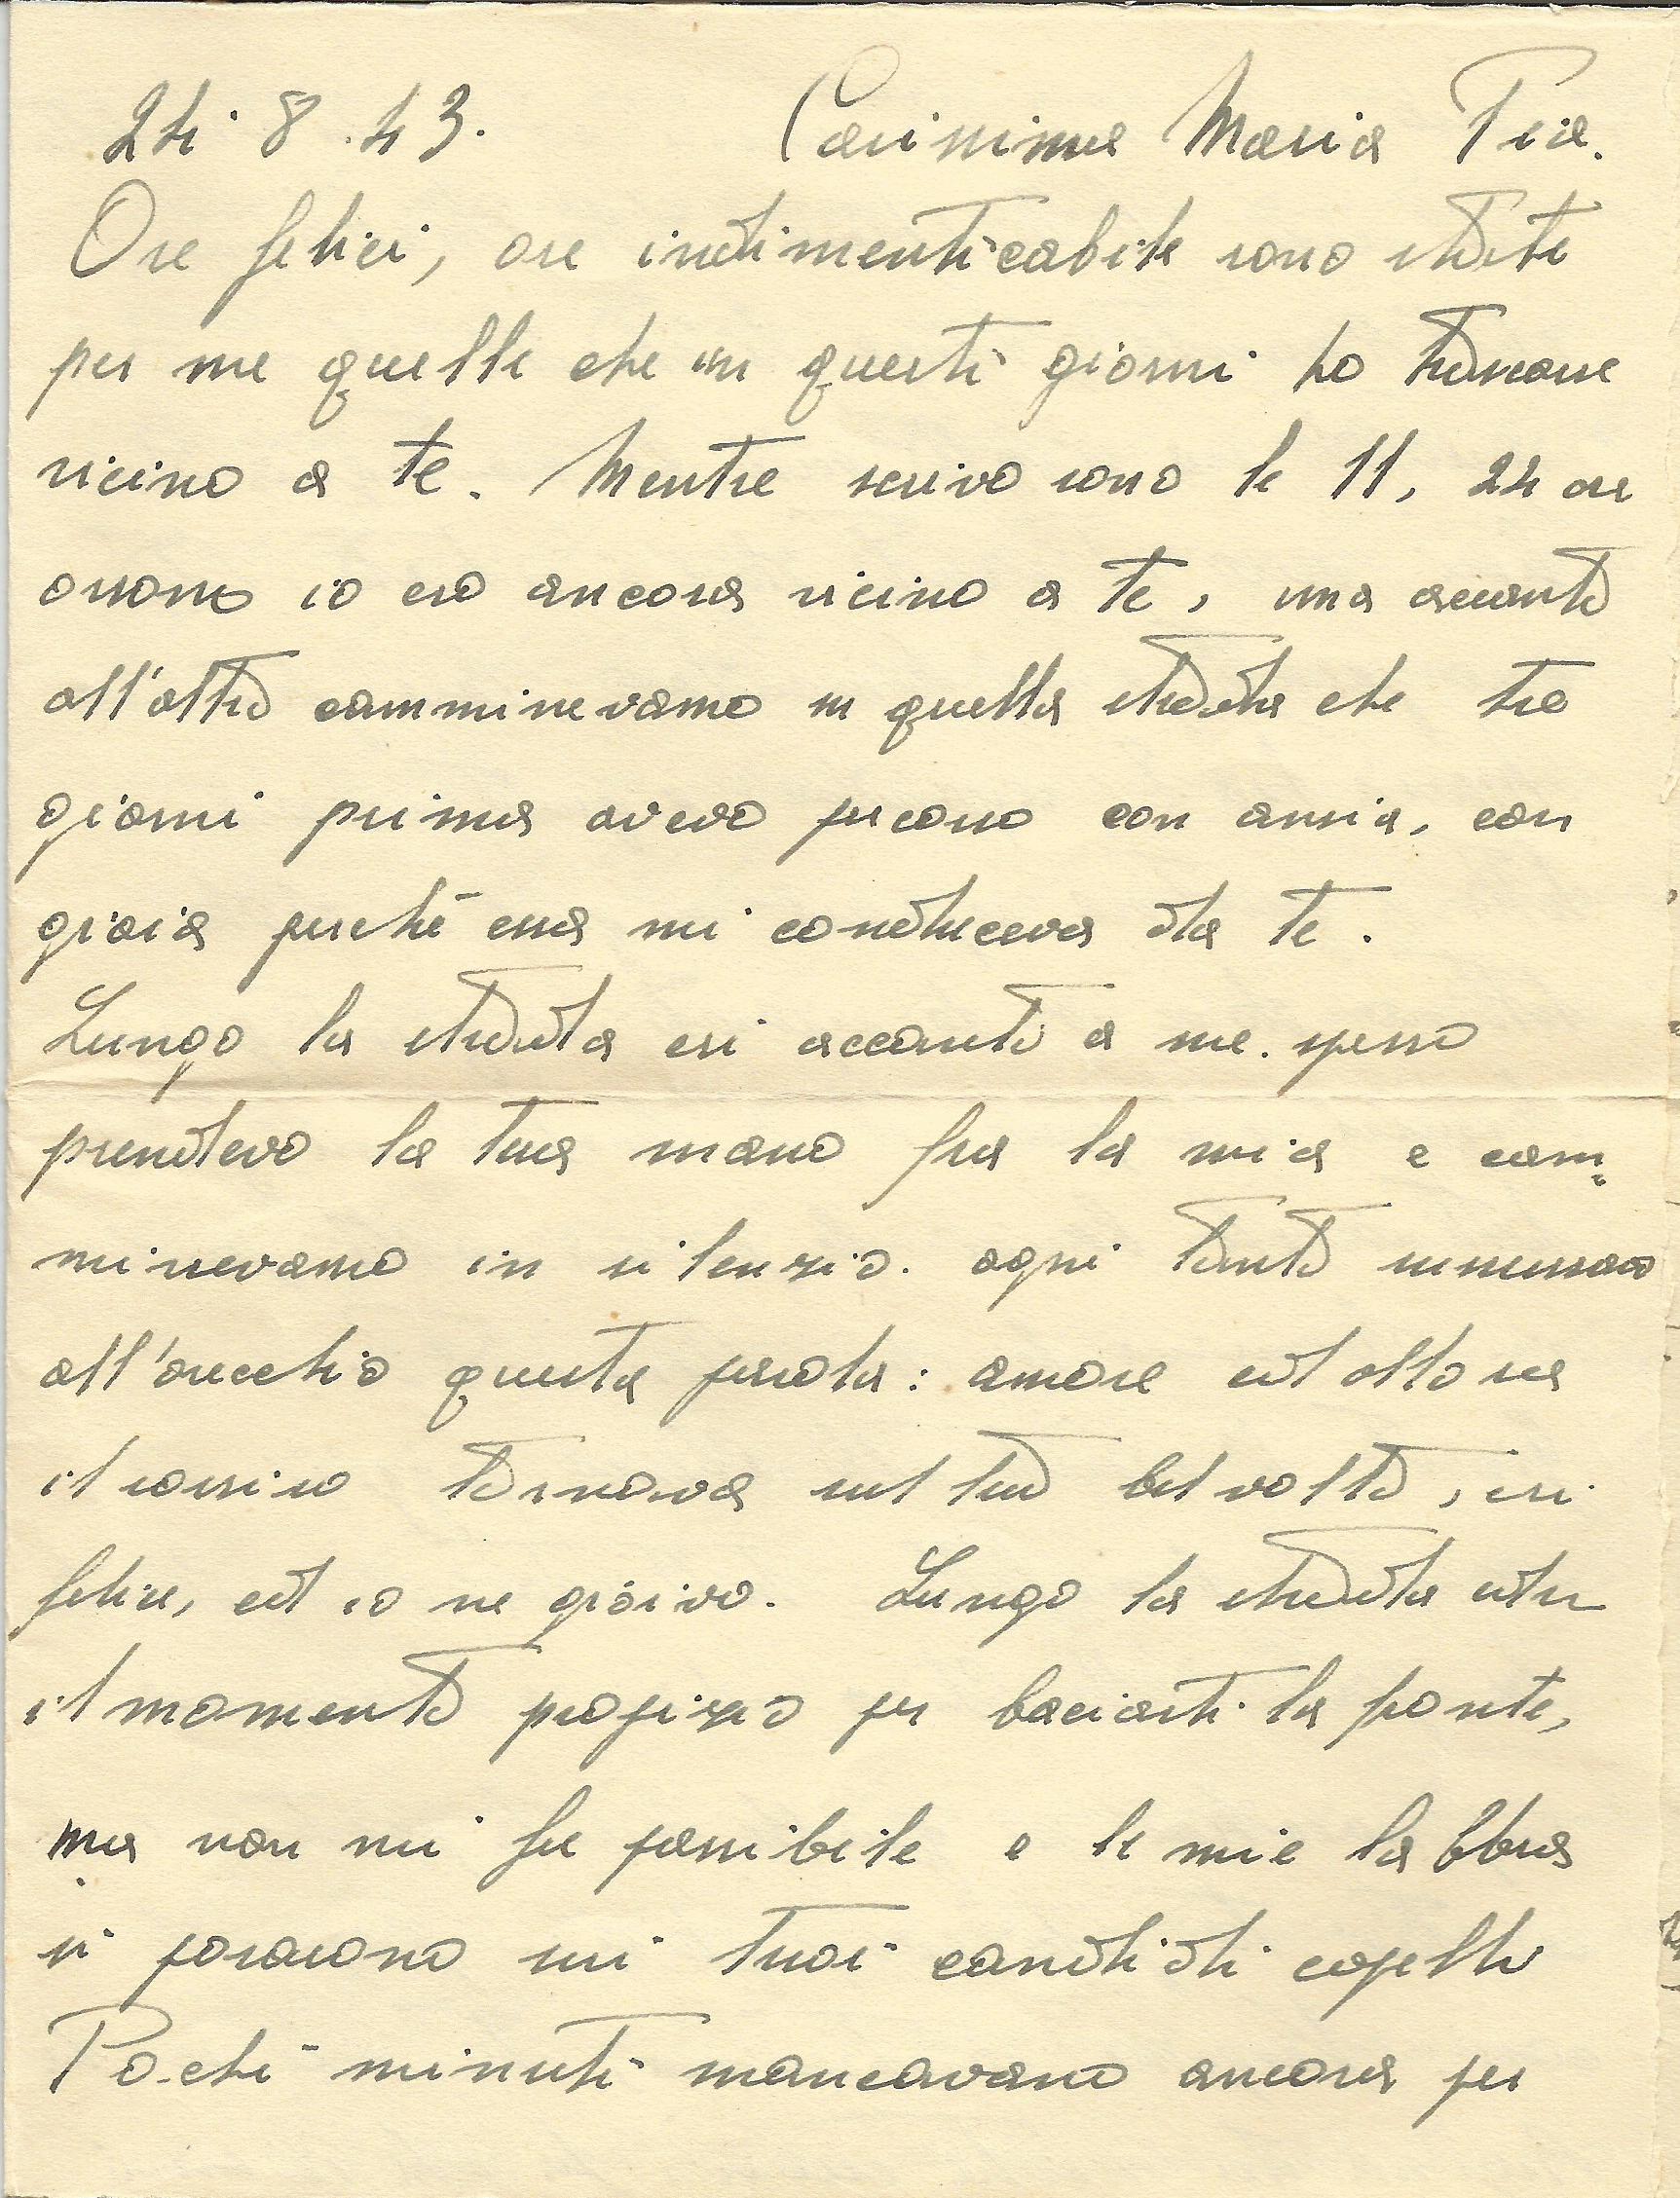 24. 8. 43. Carissima Maria Pia.
Ore felici, ore indimenticabili sono state
per me quelle che in questi giorni ho trascorse
vicino a te. Mentre scrivo sono le 11, 24 ore
orsono io ero ancora vicino a te, una accanto
all'altro camminavamo in quella strada che tre
giorni prima avevo percorso con ansia, con
gioia perché essa mi conduceva da te.
Lungo la strada eri accanto a me. spesso
prendevo la tua mano fra la mia e cam=
minavamo in silenzio. ogni tanto sussurravo
all'orecchio questa parola: amore ed allora
il sorriso tornava sul tuo bel volto, eri
felice, ed io ne gioivo. Lungo la strada
il momento propizio per baciarti la fronte,
ma non mi fu possibile e le mie labbra
si posarono sui tuoi candidi capelli
Pochi minuti mancavano ancora per